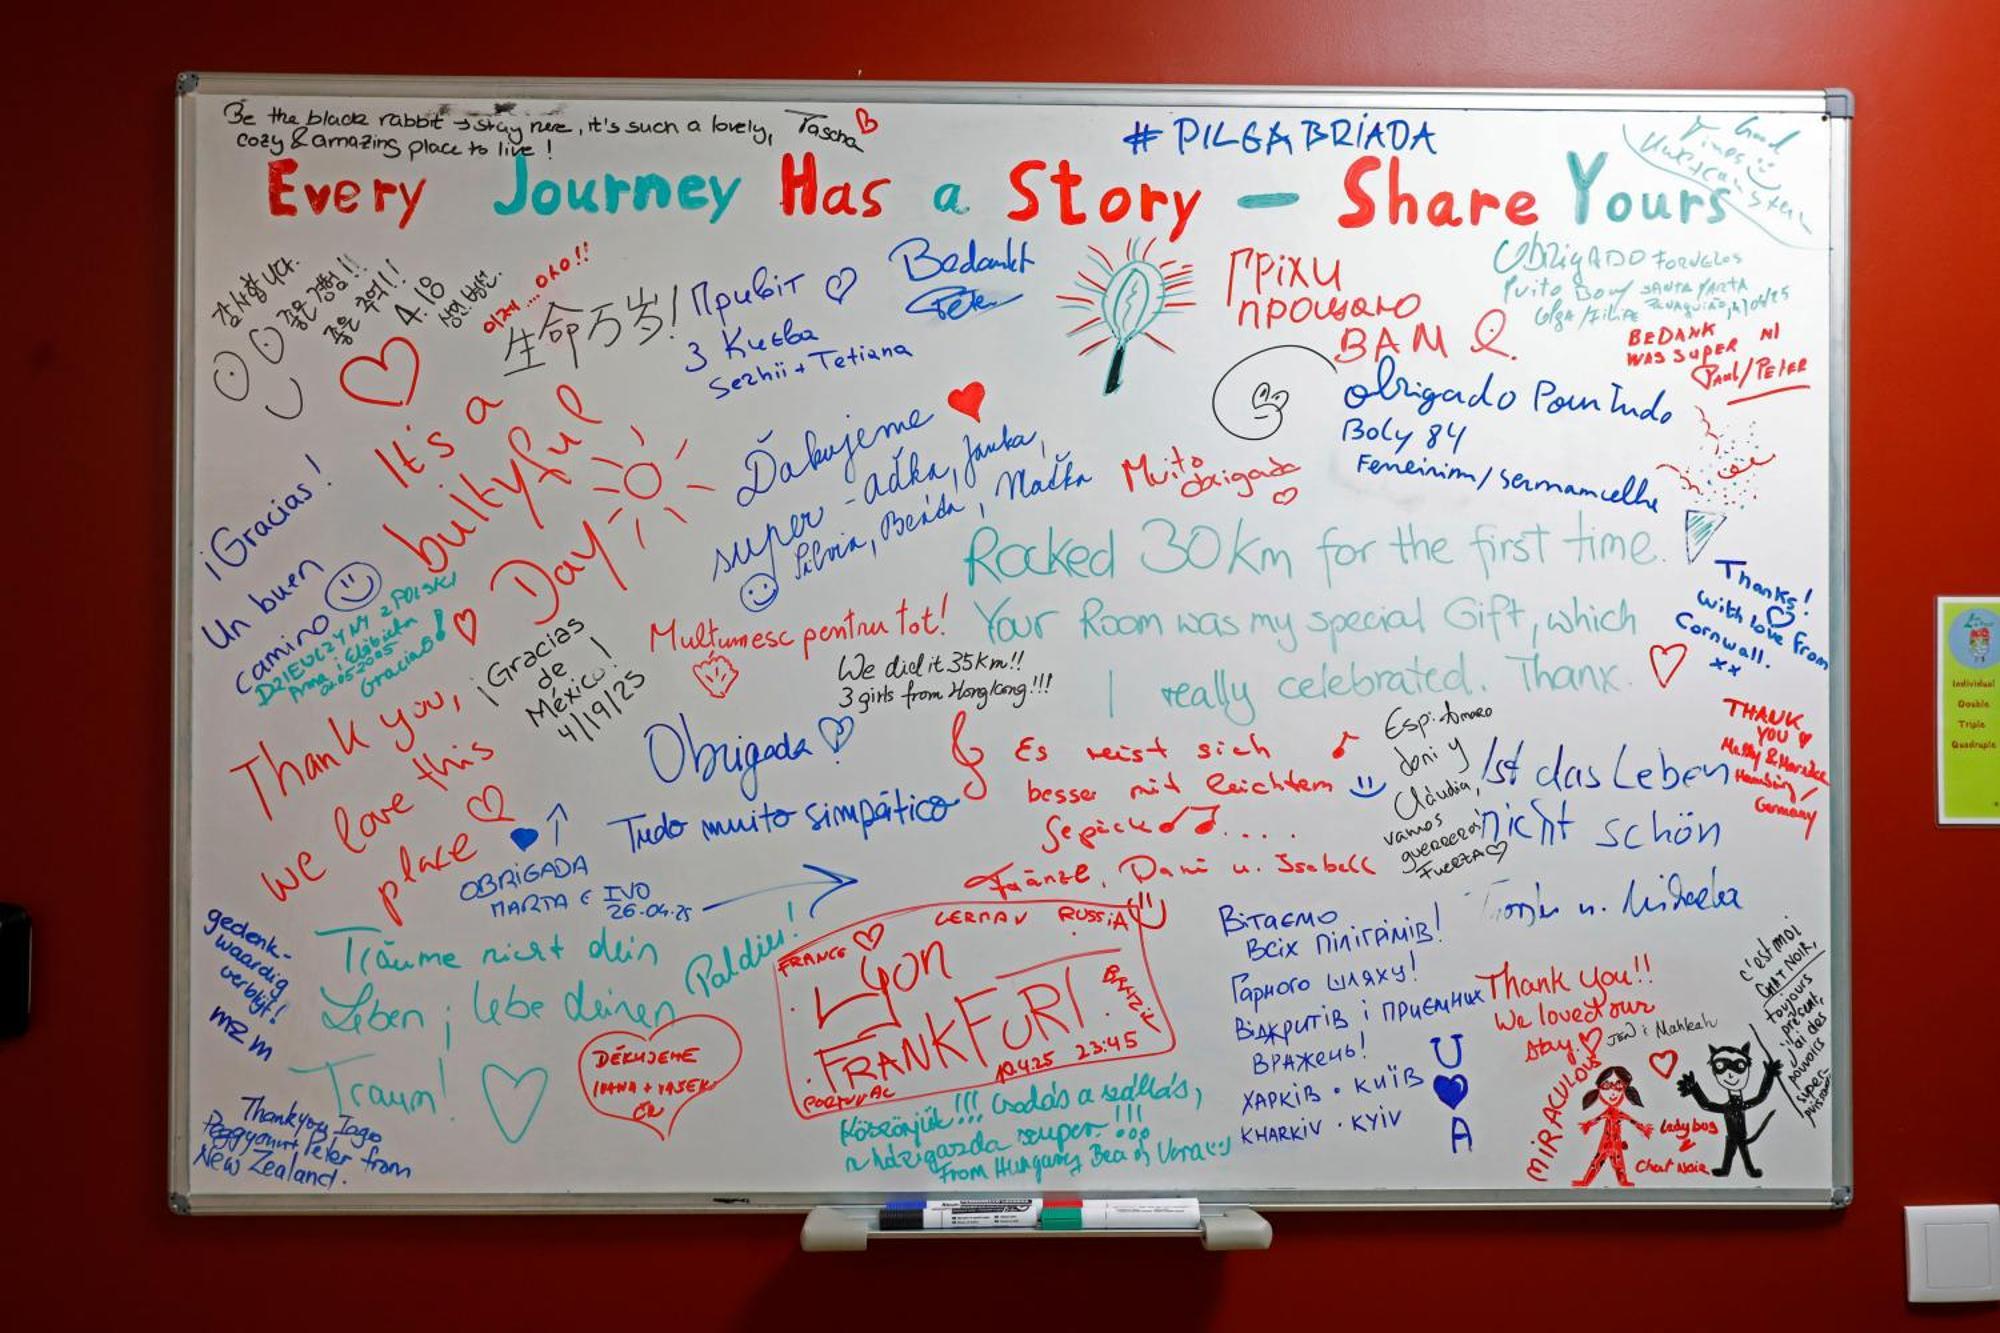 Be the black rabbit → stay here, it's such a lovely,
cozy & amazing place to live!
Tascha
# PILGABRIADA
Good
Times
Every Journey Has a Story – Share Yours
감사합니다.
좋은 경험!!
좋은 추억!!
4.18
이제 .... 야호!!
生命万岁!
Привіт
З Києва
Serhii + Tetiana
Bedankt
Peter
Гріхи
прощаю
ВАМ
Obrigado
SANTA MARTA
Olga / Filipe
BEDANK
WAS SUPER
Paul/Peter
It's a
buityful
Day
Ďakujeme
super - aďka, Janka,
Silvia, Beáta, Maťka
Muito
obrigada
Obrigado Por Tudo
Boly 84
¡Gracias!
Un buen
camino
DZIEWCZYNY z POLSKI
Anna i Elżbieta
Gracias!
¡Gracias
de
México!
4/19/25
Multumesc pentru tot!
We did it 35km!!
3 girls from Hong kong!!!
Rocked 30km for the first time.
Your Room was my special Gift, which
I really celebrated. Thanx.
Thanks!
With love from
Cornwall.
xx
Thank you,
we love this
place
Obrigada
Tudo muito simpático
OBRIGADA
MARTA E IVO
26-04-25
Es reist sich
besser mit leichtem
Gepäck ....
Fränze, Dani u. Isabell
Espi-tomaro
Joni y
Cláudia,
vamos
guerreros!
Fuerza
Ist das Leben
nicht schön
THANK
YOU
Germany
gedenk-
waardig
verblijf!
mzm
Träume nicht dein
Leben; lebe deinen
Traum!
Paldies!
DĚKUJEME
IVANA + VAŠEK
ČR
FRANCE
GERMANY
RUSSIA
Lyon
FRANKFURT
BRAZIL
PORTUGAL
23:45
Вітаємо
Всіх пілігрімів!
Гарного шляху!
Відкриттів і приємних
вражень!
ХАРКІВ · КИЇВ
KHARKIV · KYIV
U
A
Thank you!!
We loved our
stay.
JEN i Mahkah
MIRACULOUS
Ladybug
&
Chat Noir
c'est moi
CHAT NOIR,
toujours
présent,
j'ai des
pouvoirs
super-
puissants
Thankyou Iago
Peggy and Peter from
New Zealand.
Köszönjük!!! Csodás a szállás,
a házigazda szuper!!!
From Hungary Bea és Vera
Individual
Double
Triple
Quadruple